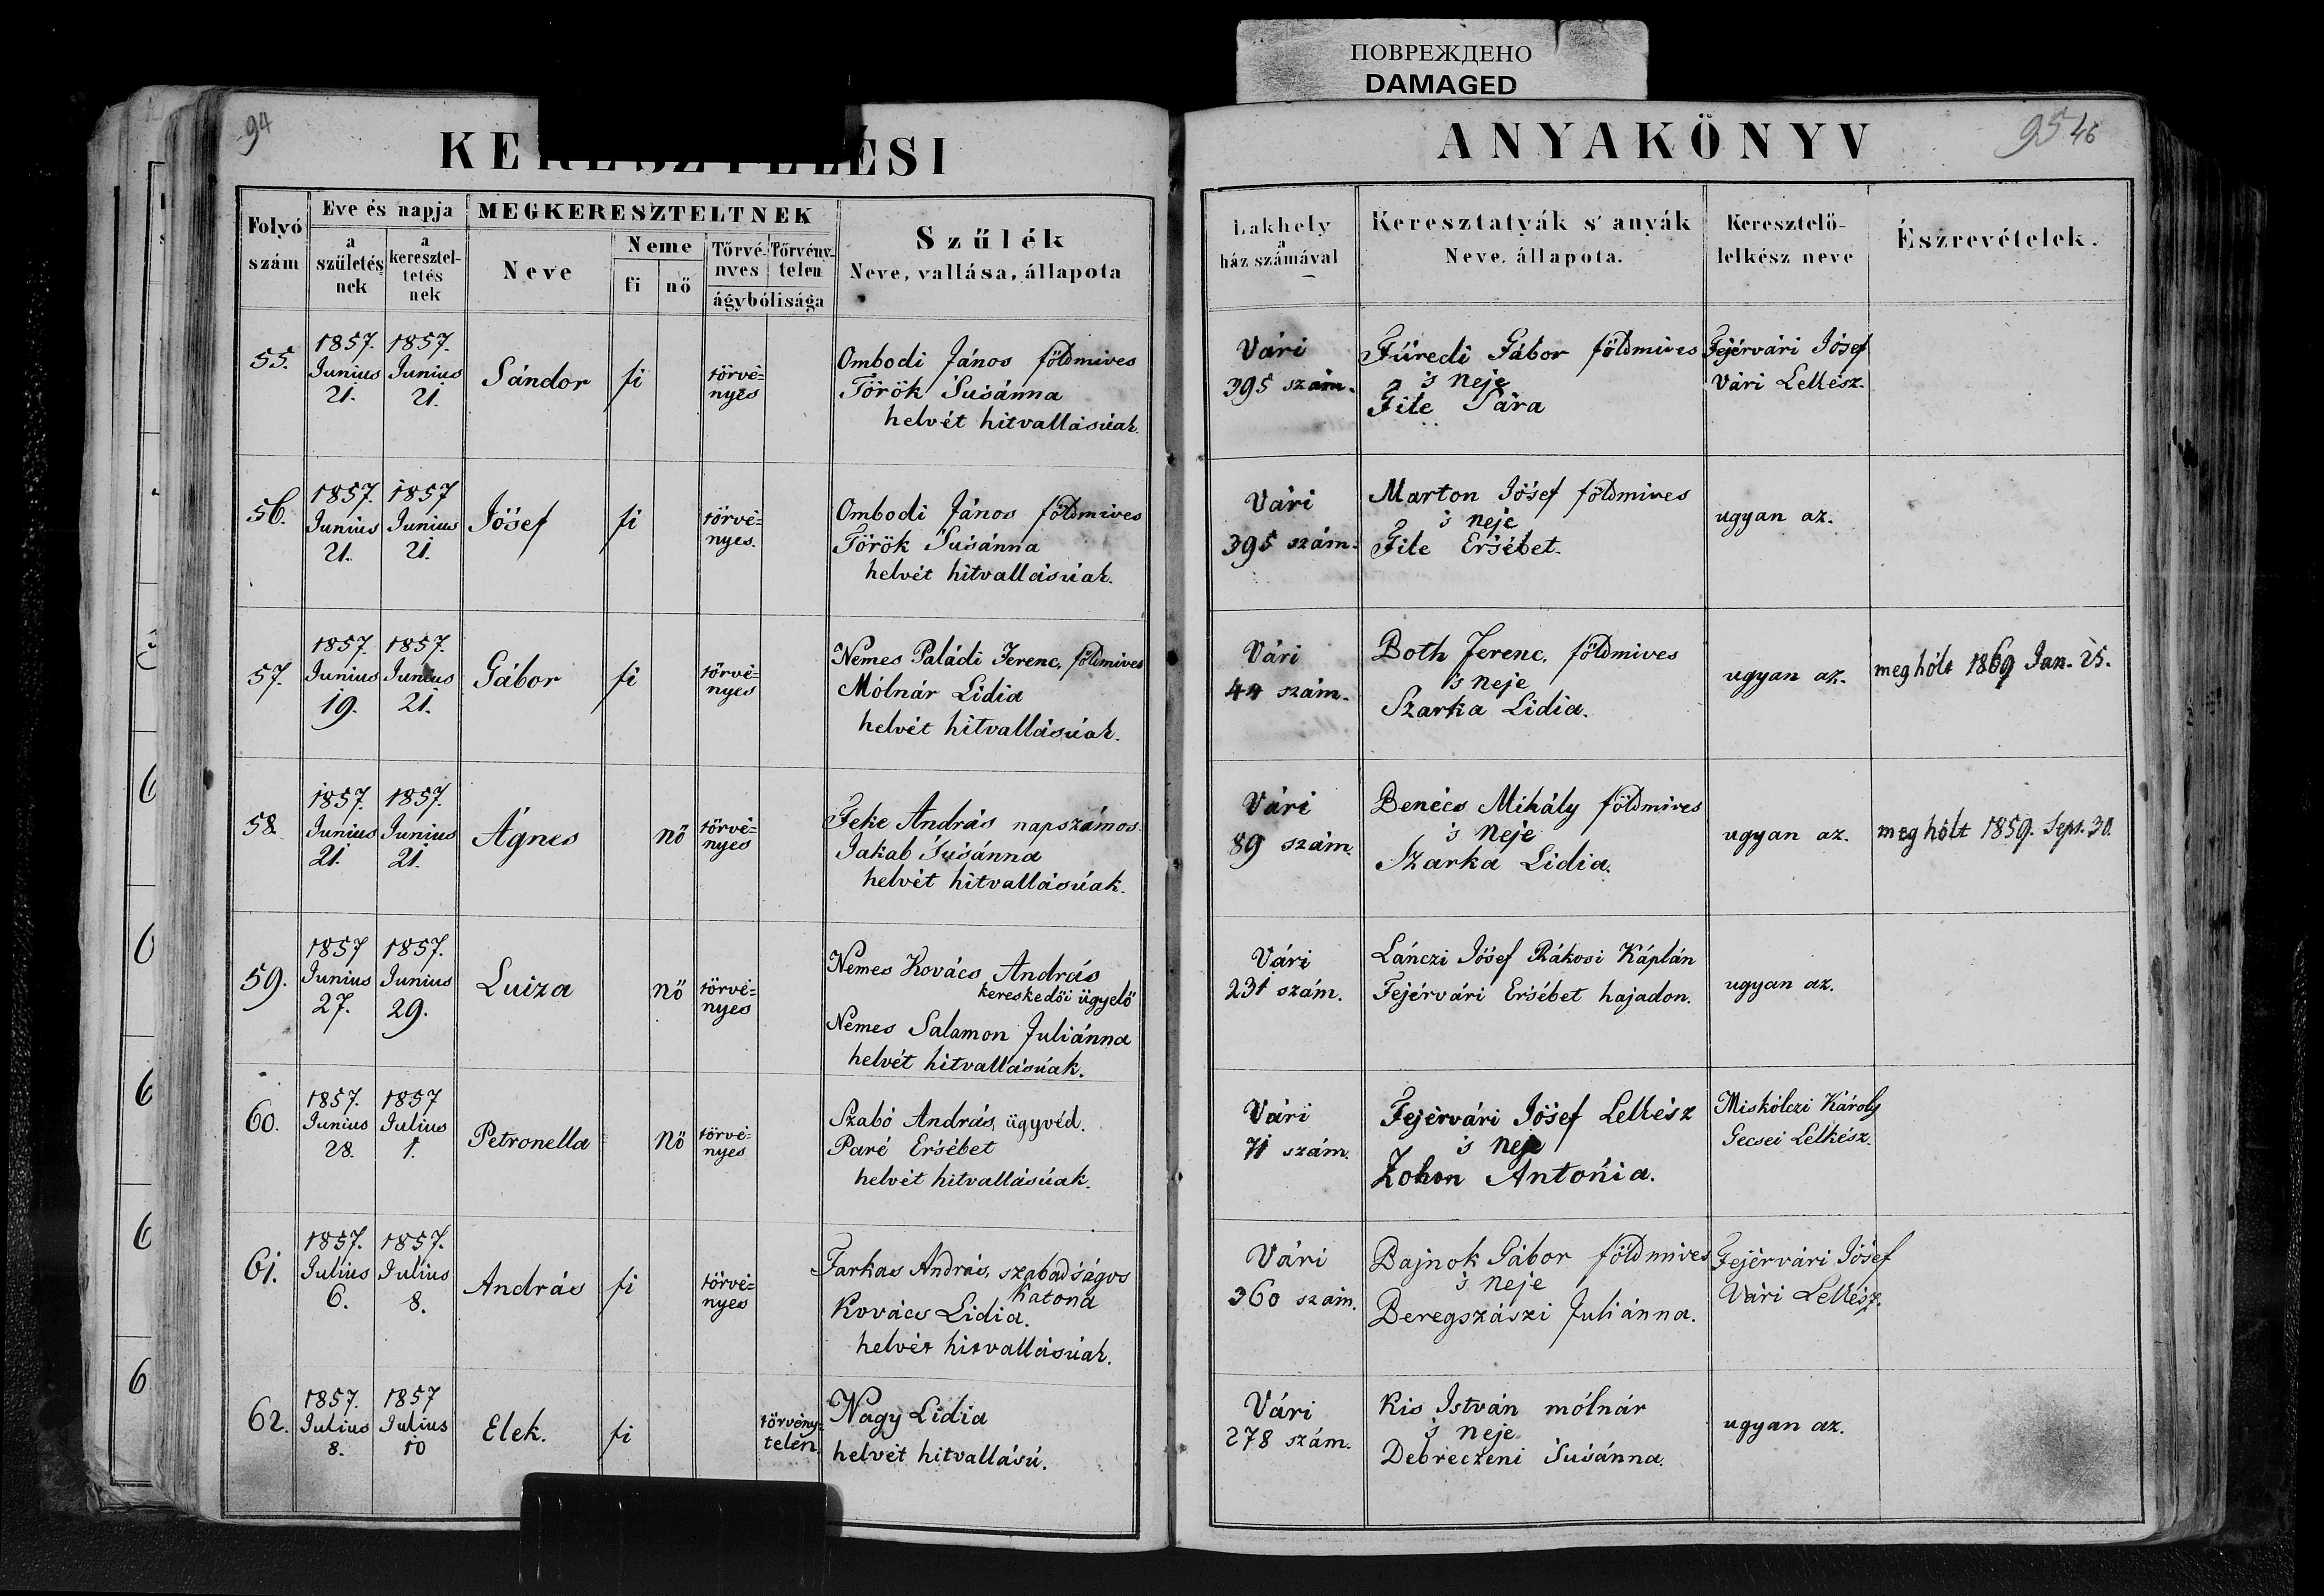 ПОВРЕЖДЕНО
DAMAGED
94
KERESZTELÉSI
Folyó szám
Eve és napja
a születésnek
a kereszteltetésnek
MEGKERESZTELTNEK
Neve
Neme
fi
nő
Törvényes
Törvénytelen
ágybólisága
Szűlék
Neve, vallása, állapota
55.
1857. Junius 21.
1857. Junius 21.
Sándor
fi
törvé=
nyes
Ombodi János földmives
Török Susánna
helvét hitvallásúak.
56.
1857. Junius 21.
1857 Junius 21.
Jósef
fi
törvé=
nyes.
Ombodi János földmives
Török Susánna
helvét hitvallásúak.
57.
1857. Junius 19.
1857. Junius 21.
Gábor
fi
törvé=
nyes
Nemes Paládi Ferenc, földmives
Mólnár Lidia
helvét hitvallásúak.
58.
1857. Junius 21.
1857. Junius 21.
Ágnes
nő
törvé=
nyes
Feke András napszámos
Jakab Susánna
helvét hitvallásúak.
59.
1857 Junius 27.
1857. Junius 29.
Luiza
nő
törvé=
nyes
Nemes Kovács András
kereskedői ügyelő
Nemes Salamon Juliánna
helvét hitvallásúak.
60.
1857. Junius 28.
1857 Julius 1.
Petronella
nő
törvé=
nyes
Szabó András, ügyvéd.
Paré Ersébet
helvét hitvallásúak.
61.
1857. Julius 6.
1857. Julius 8.
András
fi
törvé=
nyes
Farkas András, szabadságos
katona
Kovács Lidia.
helvét hitvallásúak.
62.
1857. Julius 8.
1857 Julius 10
Elek.
fi
törvény=
telen
Nagy Lidia
helvét hitvallású.
ANYAKÖNYV
95 46
Lakhely
a
ház számával
Keresztatyák s' anyák
Neve, állapota.
Keresztelő-
lelkész neve
Észrevételek.
Vári
395 szám.
Füredi Gábor földmives
's neje
Fite Sára
Fejérvári Jósef
Vári Lelkész.
Vári
395 szám.
Marton Jósef földmives
's neje
Fite Ersébet.
ugyan az.
Vári
44 szám.
Both Ferenc, földmives
's neje
Szarka Lidia.
ugyan az.
meg hólt 1869 Jan. 25.
Vári
89 szám.
Benécs Mihály földmives
's neje
Szarka Lidia.
ugyan az.
meg hólt 1859. Sept. 30.
Vári
231 szám.
Lánczi Jósef Rákosi Káplán
Fejérvári Ersébet hajadon.
ugyan az.
Vári
71 szám.
Fejérvári Jósef Lelkész
's neje
Zohon Antónia.
Miskólczi Károly
Gecsei Lelkész.
Vári
360 szám.
Bajnok Gábor földmives
's neje
Beregszászi Juliánna.
Fejérvári Jósef
Vári Lelkész.
Vári
278 szám.
Kis István mólnár
's neje
Debreczeni Susánna.
ugyan az.